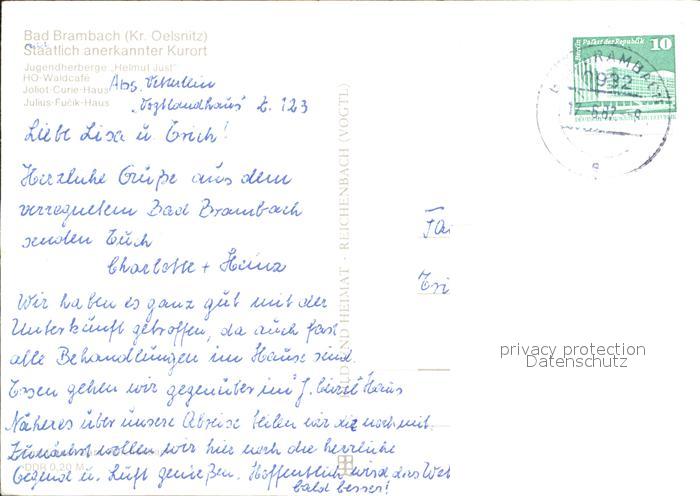 Bad Brambach (Kr. Oelsnitz)
Staatlich anerkannter Kurort
Jugendherberge „Helmut Just"
HO-Waldcafé
Joliot-Curie-Haus
Julius-Fučik-Haus
Abs.
„Vogtlandhaus" Z. 123
Liebe Lisa u. Erich!
Herzliche Grüße aus dem
verregneten Bad Brambach
senden Euch
Charlotte + Heinz
Wir haben es ganz gut mit der
Unterkunft getroffen, da auch fast
alle Behandlungen im Hause sind.
Essen gehen wir gegenüber im Haus
Näheres über unsere Abreise teilen wir noch mit.
Zunächst wollen wir hier noch die herrliche
Gegend u. Luft genießen. Hoffentlich wird das Wet
bald besser!
DDR 0,20 M
BILD UND HEIMAT · REICHENBACH (VOGTL)
Berlin Palast der Republik
10
BRAMBACH
9932
privacy protection
Datenschutz